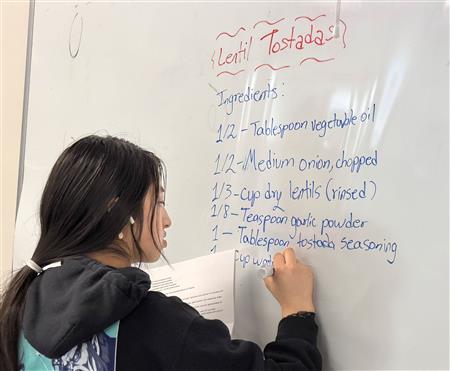 {Lentil Tostadas}
Ingredients:
1/2 - Tablespoon vegetable oil
1/2 - Medium onion, chopped
1/3 - Cup dry lentils (rinsed)
1/8 - Teaspoon garlic powder
1 - Tablespoon tostada seasoning
Cup